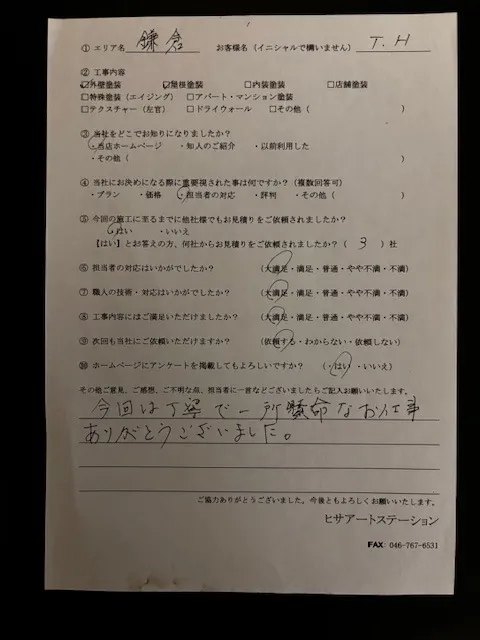 ① エリア名 鎌倉 お客様名(イニシャルで構いません) T.H
② 工事内容
☑外壁塗装 ☑屋根塗装 □内装塗装 □店舗塗装
□特殊塗装(エイジング) □アパート・マンション塗装
□テクスチャー(左官) □ドライウォール □その他( )
③ 当社をどこでお知りになりましたか?
・当店ホームページ ・知人のご紹介 ・以前利用した
・その他( )
④ 当社にお決めになる際に重要視された事は何ですか?(複数回答可)
・プラン ・価格 ・担当者の対応 ・評判 ・その他( )
⑤ 今回の施工に至るまでに他社様でもお見積りをご依頼されましたか?
・はい ・いいえ
【はい】とお答えの方、何社からお見積りをご依頼されましたか?( 3 )社
⑥ 担当者の対応はいかがでしたか? (大満足・満足・普通・やや不満・不満)
⑦ 職人の技術・対応はいかがでしたか? (大満足・満足・普通・やや不満・不満)
⑧ 工事内容にはご満足いただけましたか? (大満足・満足・普通・やや不満・不満)
⑨ 次回も当社にご依頼いただけますか? (依頼する・わからない・依頼しない)
⑩ ホームページにアンケートを掲載してもよろしいですか? (・はい・いいえ)
その他ご意見、ご感想、ご不明な点、担当者に一言などございましたらご記入お願いいたします。
今回は丁寧で一所懸命なお仕事
ありがとうございました。
ご協力ありがとうございました。今後ともよろしくお願いいたします。
ヒサアートステーション
FAX: 046-767-6531